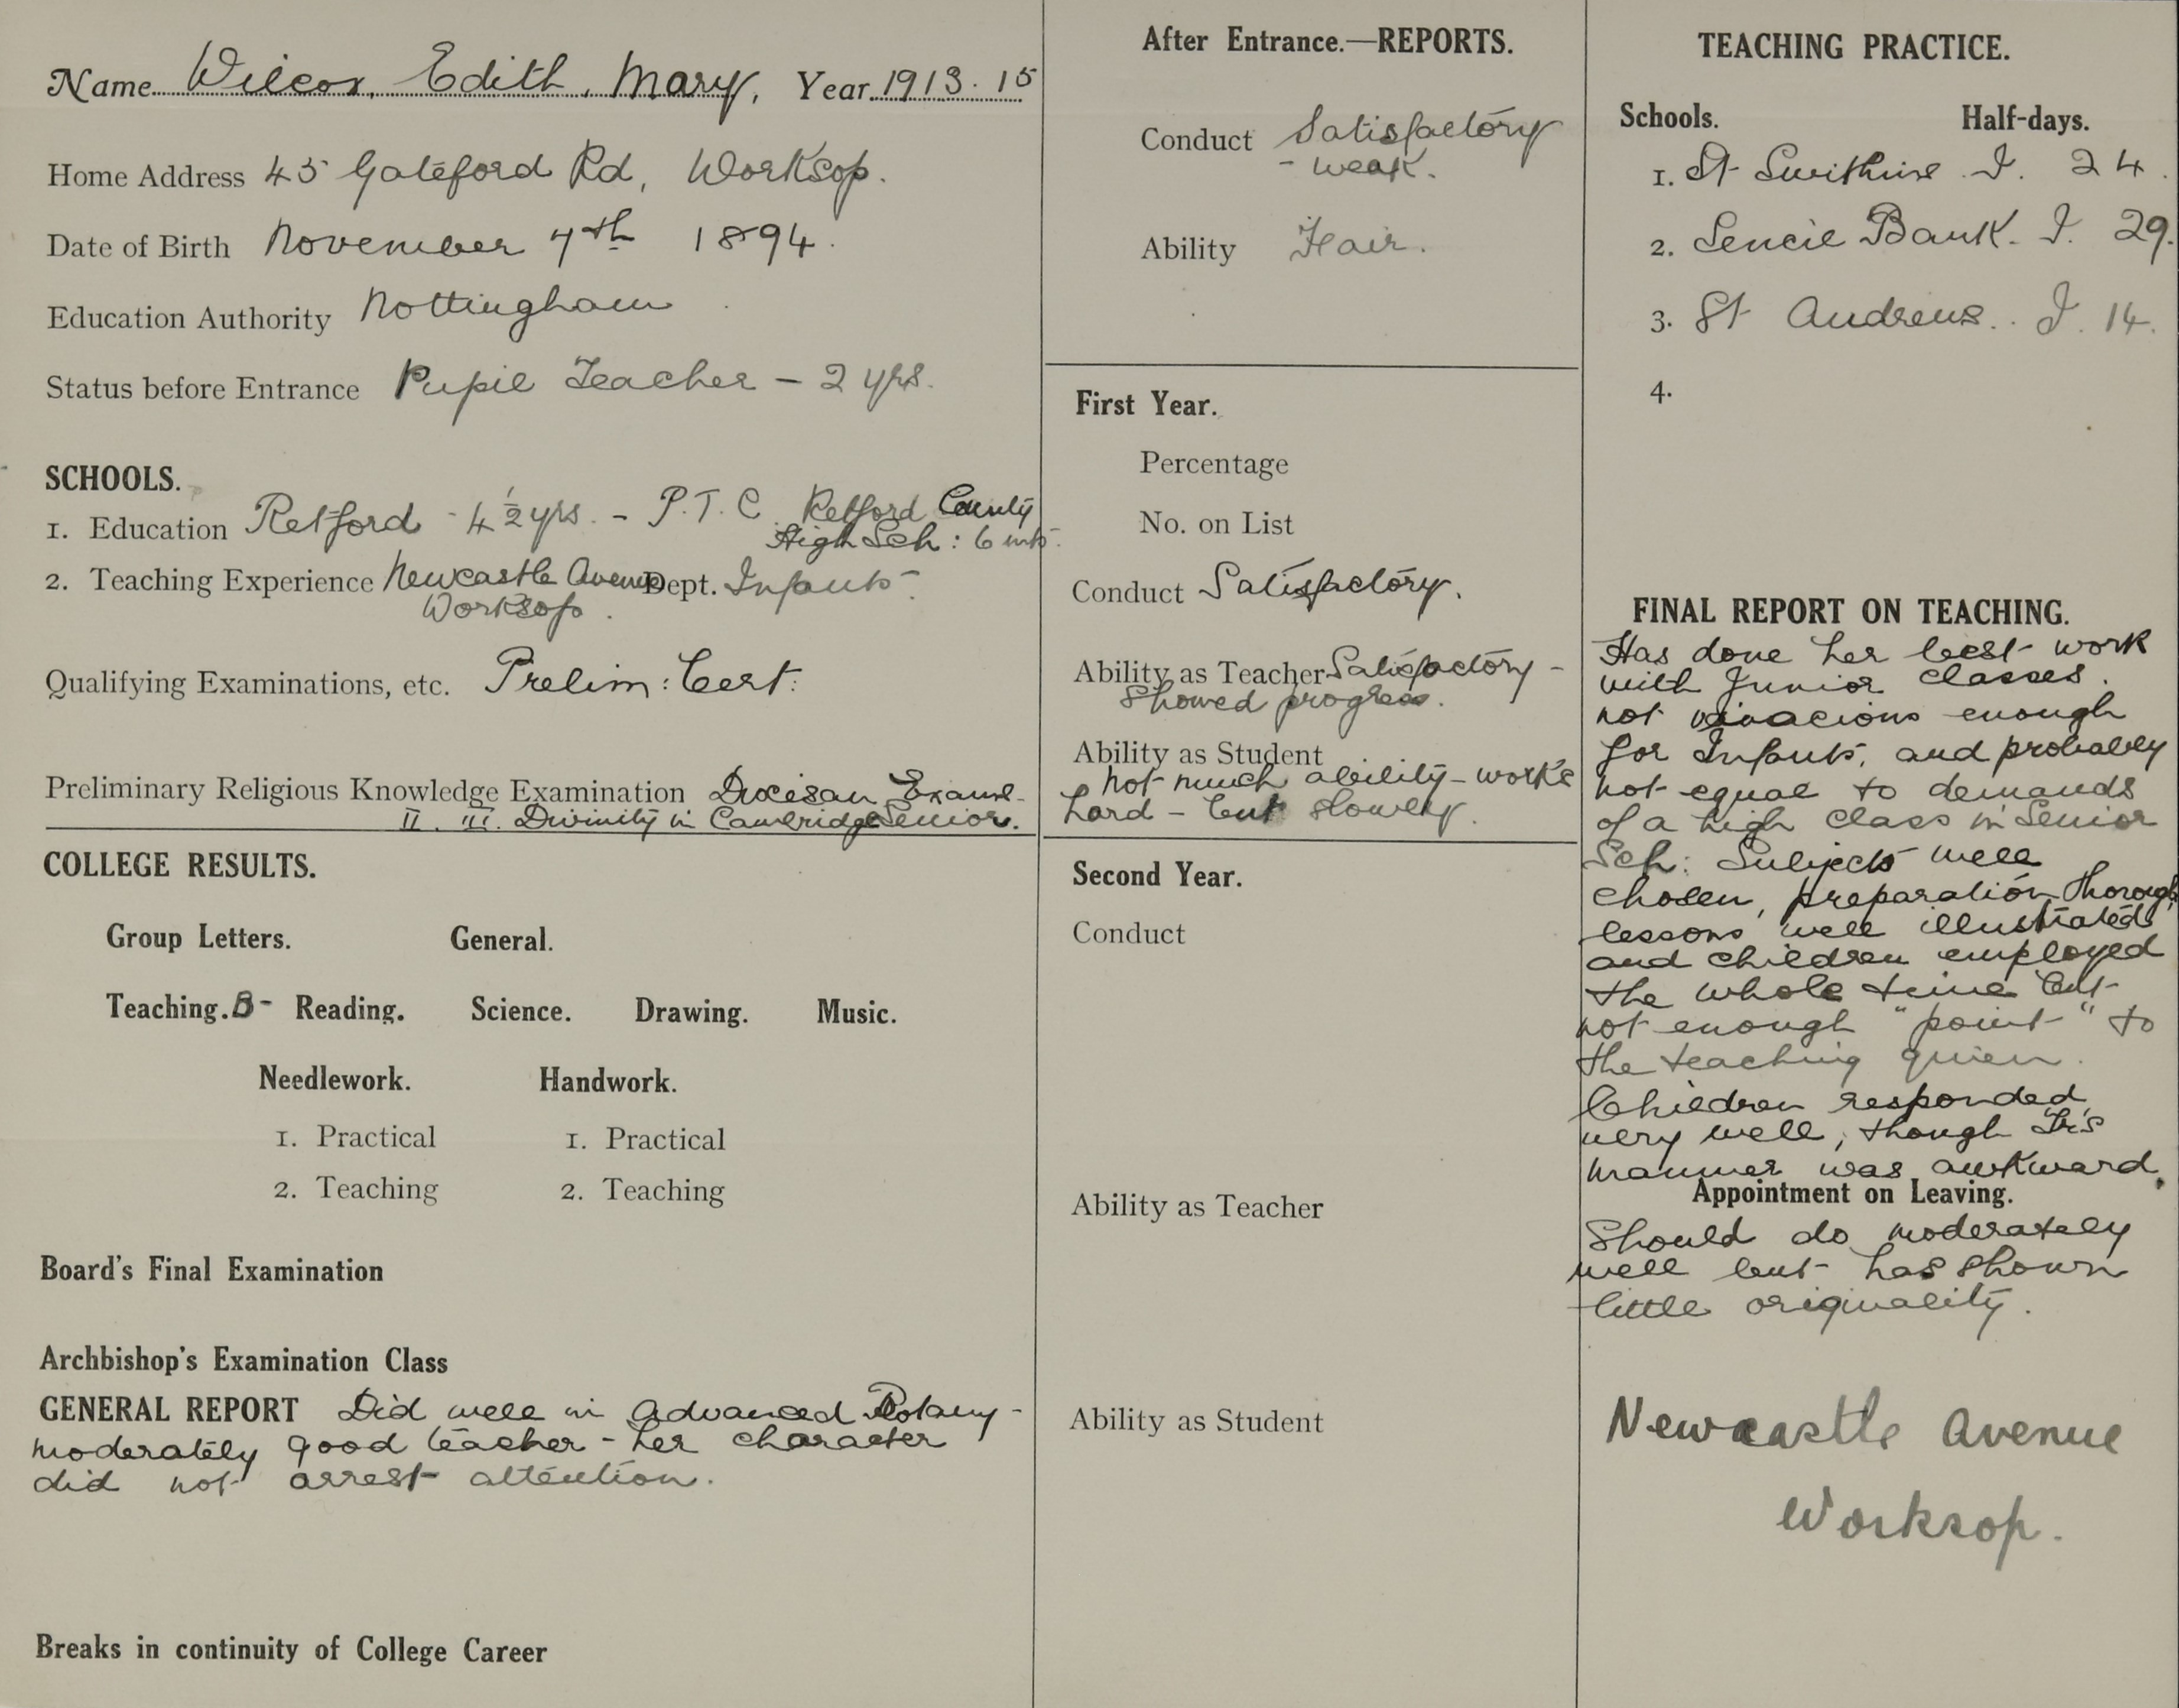 Name Wilcox, Edith, Mary, Year 1913.15
Home Address 45 Gateford Rd, Worksop.
Date of Birth November 7th 1894.
Education Authority Nottingham
Status before Entrance Pupil Teacher - 2 yrs.
SCHOOLS.
1. Education Retford - 4½ yrs. - P.T.C. Retford County
High Sch: 6 mts.
2. Teaching Experience Newcastle Avenue Dept. Infants
Worksop.
Qualifying Examinations, etc. Prelim: Cert:
Preliminary Religious Knowledge Examination Diocesan Exams-
II. III. Divinity in Cambridge Senior.
COLLEGE RESULTS.
Group Letters. General.
Teaching. B- Reading. Science. Drawing. Music.
Needlework. Handwork.
1. Practical 1. Practical
2. Teaching 2. Teaching
Board's Final Examination
Archbishop's Examination Class
GENERAL REPORT Did well in Advanced Botany -
moderately good teacher - her character
did not arrest attention.
Breaks in continuity of College Career
After Entrance.—REPORTS.
Conduct Satisfactory
- weak.
Ability Fair.
First Year.
Percentage
No. on List
Conduct Satisfactory.
Ability as Teacher Satisfactory -
Showed progress.
Ability as Student
not much ability - works
hard - but slowly.
Second Year.
Conduct
Ability as Teacher
Ability as Student
TEACHING PRACTICE.
Schools. Half-days.
1. St Swithins I. 24.
2. Sencil Bank. I. 29.
3. St Andrews.. I. 14.
4.
FINAL REPORT ON TEACHING.
Has done her best work
with Junior classes.
not vivacious enough
for Infants, and probably
not equal to demands
of a high class in Senior
Sch: Subjects well
chosen, preparation thorough,
lessons well illustrated
and children employed
the whole time but
not enough "point" to
the teaching given.
Children responded
very well, though Tr's
manner was awkward.
Appointment on Leaving.
Should do moderately
well but has shown
little originality.
Newcastle Avenue
Worksop.